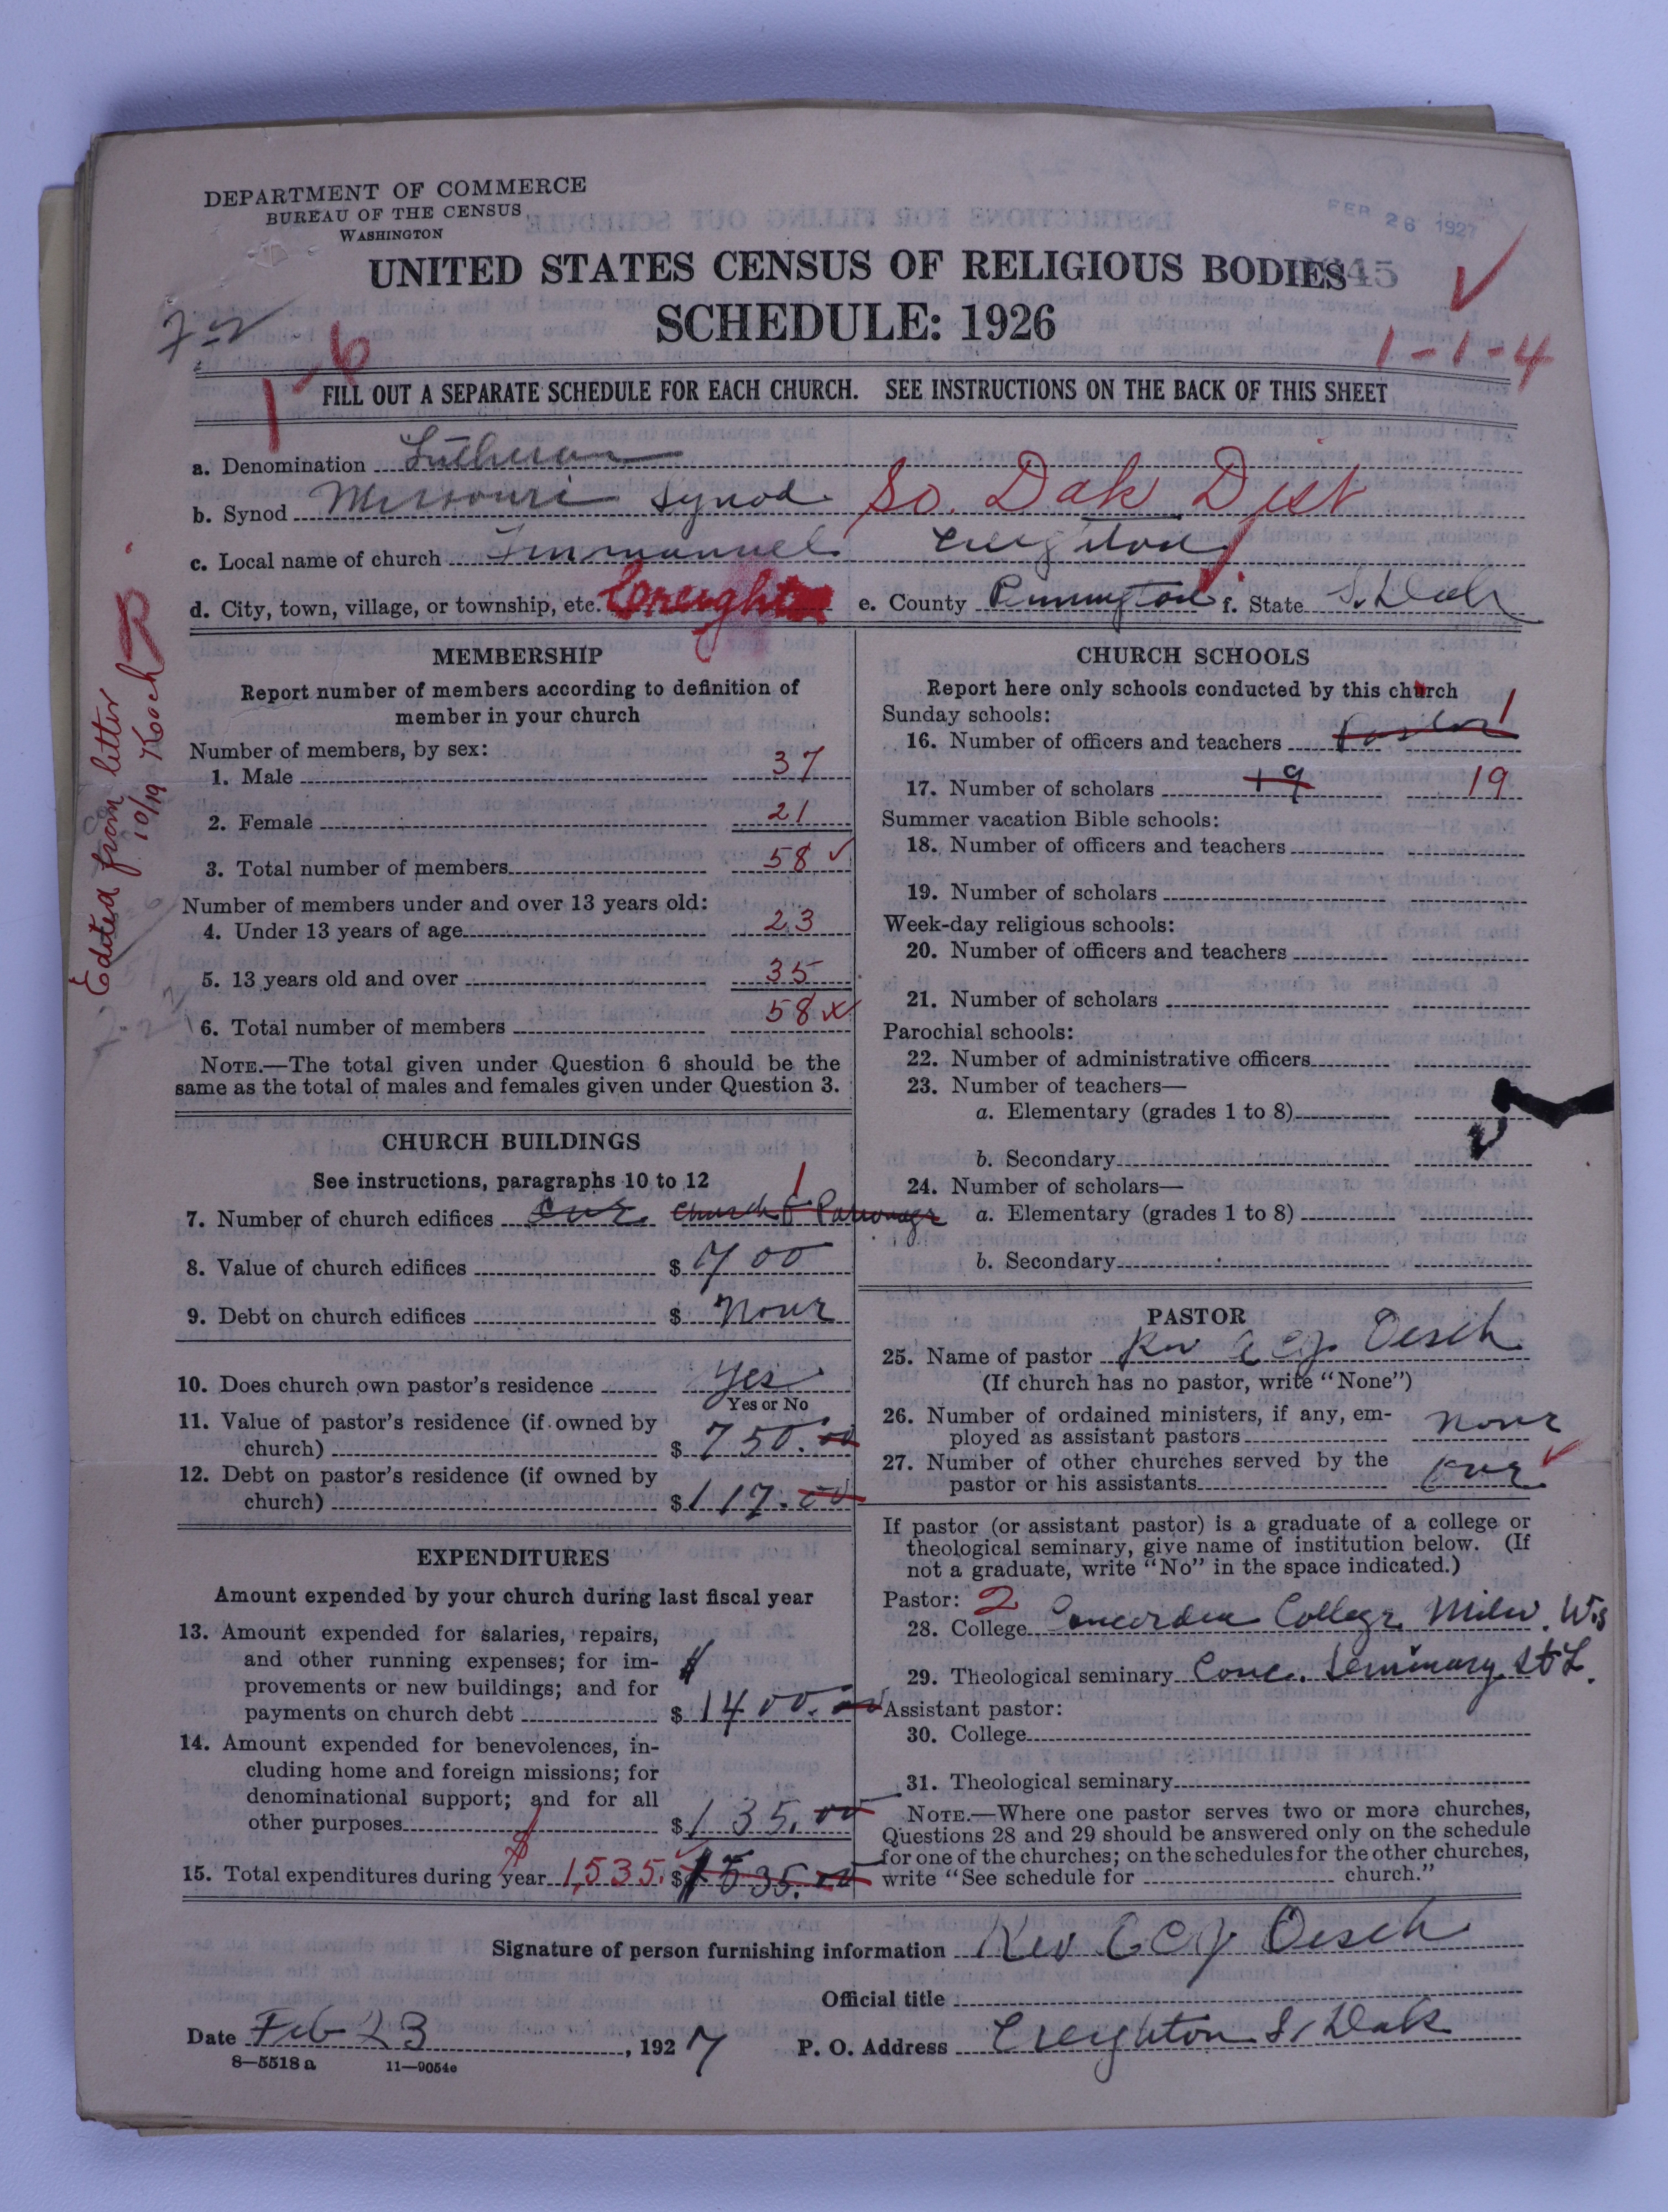 DEPARTMENT OF COMMERCE
BUREAU OF THE CENSUS
WASHINGTON
FEB 26 1927
UNITED STATES CENSUS OF RELIGIOUS BODIES
SCHEDULE: 1926
1-6
1-1-4
FILL OUT A SEPARATE SCHEDULE FOR EACH CHURCH. SEE INSTRUCTIONS ON THE BACK OF THIS SHEET
a. Denomination Lutheran
b. Synod Missouri Synod So. Dak Dist
c. Local name of church Immanuel Creighton
d. City, town, village, or township, etc. Creighton e. County Pennington f. State S. Dak
Edited from letter
10/19 Kooch
MEMBERSHIP
Report number of members according to definition of
member in your church
Number of members, by sex:
1. Male 37
2. Female 21
3. Total number of members 58
Number of members under and over 13 years old:
4. Under 13 years of age 23
5. 13 years old and over 35
6. Total number of members 58
NOTE.—The total given under Question 6 should be the
same as the total of males and females given under Question 3.
CHURCH BUILDINGS
See instructions, paragraphs 10 to 12
7. Number of church edifices one church & Parsonage 1
8. Value of church edifices $ 700
9. Debt on church edifices $ none
10. Does church own pastor's residence yes
Yes or No
11. Value of pastor's residence (if owned by
church) $ 750.00
12. Debt on pastor's residence (if owned by
church) $ 117.00
EXPENDITURES
Amount expended by your church during last fiscal year
13. Amount expended for salaries, repairs,
and other running expenses; for im-
provements or new buildings; and for
payments on church debt $ 1400.00
14. Amount expended for benevolences, in-
cluding home and foreign missions; for
denominational support; and for all
other purposes $ 135.00
15. Total expenditures during year 1,535. $ 1535.00
CHURCH SCHOOLS
Report here only schools conducted by this church
Sunday schools:
16. Number of officers and teachers Pastor 1
17. Number of scholars 19 19
Summer vacation Bible schools:
18. Number of officers and teachers
19. Number of scholars
Week-day religious schools:
20. Number of officers and teachers
21. Number of scholars
Parochial schools:
22. Number of administrative officers
23. Number of teachers—
a. Elementary (grades 1 to 8)
b. Secondary
24. Number of scholars—
a. Elementary (grades 1 to 8)
b. Secondary
PASTOR
25. Name of pastor Rev Oesch
(If church has no pastor, write "None")
26. Number of ordained ministers, if any, em-
ployed as assistant pastors none
27. Number of other churches served by the
pastor or his assistants
If pastor (or assistant pastor) is a graduate of a college or
theological seminary, give name of institution below. (If
not a graduate, write "No" in the space indicated.)
Pastor: 2
28. College Concordia College Milw. Wis
29. Theological seminary Conc. Seminary St L.
Assistant pastor:
30. College
31. Theological seminary
NOTE.—Where one pastor serves two or more churches,
Questions 28 and 29 should be answered only on the schedule
for one of the churches; on the schedules for the other churches,
write "See schedule for church."
Signature of person furnishing information Rev Oesch
Official title
Date Feb 23, 1927 P. O. Address Creighton S. Dak
8—5518 a 11—9054e